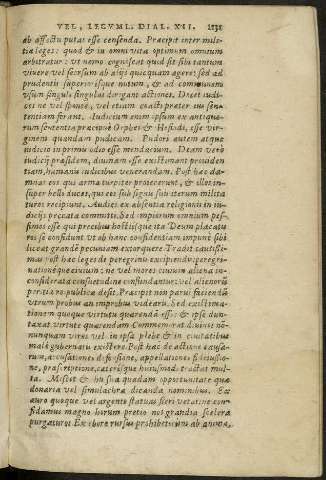 VEL, LEGVM I. DIAL. XII.
ab affectu putat esse censenda. Præcipit inter mili-
tia leges: quod & in omni vita optimum omnium
arbitratur: vt nemo cognoscat quid sit sibi tantum
vivere vel seorsum ab aliis quicquam agere: sed ad
prudentis superiorisque nutum, & ad communem
vsum singuli singulas dirigant actiones. Dicet iudi-
ces ne vel sponte, vel etiam coacti præter ius sen-
tentiam ferant. Iudicium enim ipsum ex antiquo-
rum sententia præcipuè Orphei & Hesiodi, esse vir-
ginem quandam pudicam. Pudori autem atque
iudicio in primis odio esse mendacium. Deum verò
iudiciis præsidem, diuinam esse existimant prouiden-
tiam, humanis iudicibus venerandam. Post hæc da-
mnat eos qui arma turpiter proiecerunt, & illos in-
super belli duces, qui eos sub signis suis iterum milita
turos recipiunt. Audies ex absentia religionis in iu-
diciis peccata committi. Sed impiorum omnium pes-
simos esse qui precibus hostiisque ita Deum placatu
ros se confidunt vt ob hanc confidentiam impunè sibi
liceat grandem pecuniam extorquere. Tradit cautissi-
mas post hæc leges de peregrinis excipiendis peregri-
nationeque ciuium: ne vel mores ciuium aliena in-
considerata consuetudine confundantur: vel alienorum
peritia reipublicæ desit. Præcipit non parui faciendum
vtrum probus an improbus videaris. Sed existima-
tionem quoque virtutis quærendam esse: & ipse dun-
taxat virtute quærendam. Commemorat diuinis non-
nunquam viros vel in ipsa plebe & in ciuitatibus
malè gubernatis existere. Post hæc de actione accusato-
rum, accusationis defensione, appellatione, fideiussio-
ne, præscriptione, cæterisque huiusmodi tractat mul-
ta. Miscet & his sua quadam opportunitate quæ
donaria vel simulachra dicanda numinibus. Ex
auro quoque vel argento statuas fieri vetat: ne con-
fidamus magno horum pretio nos grandia scelera
purgaturos. Ex ebore rursus prohibet: quia ab anima,